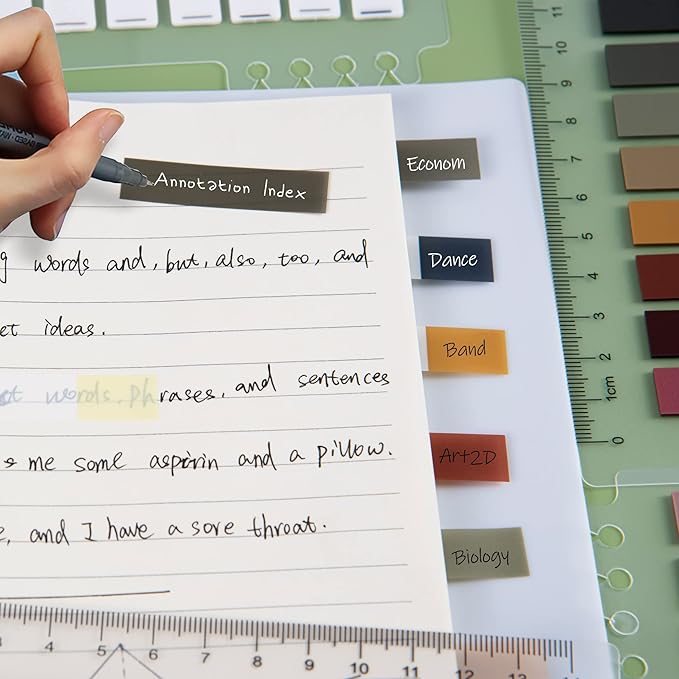 Annotation Index
words and, but, also, too, and
ideas.
words, phrases, and sentences
me some aspirin and a pillow.
and I have a sore throat.
Econom
Dance
Band
Art2D
Biology
11
9
8
7
6
5
4
3
2
1cm
0
4 5 6 7 8 9 10 11 12 13